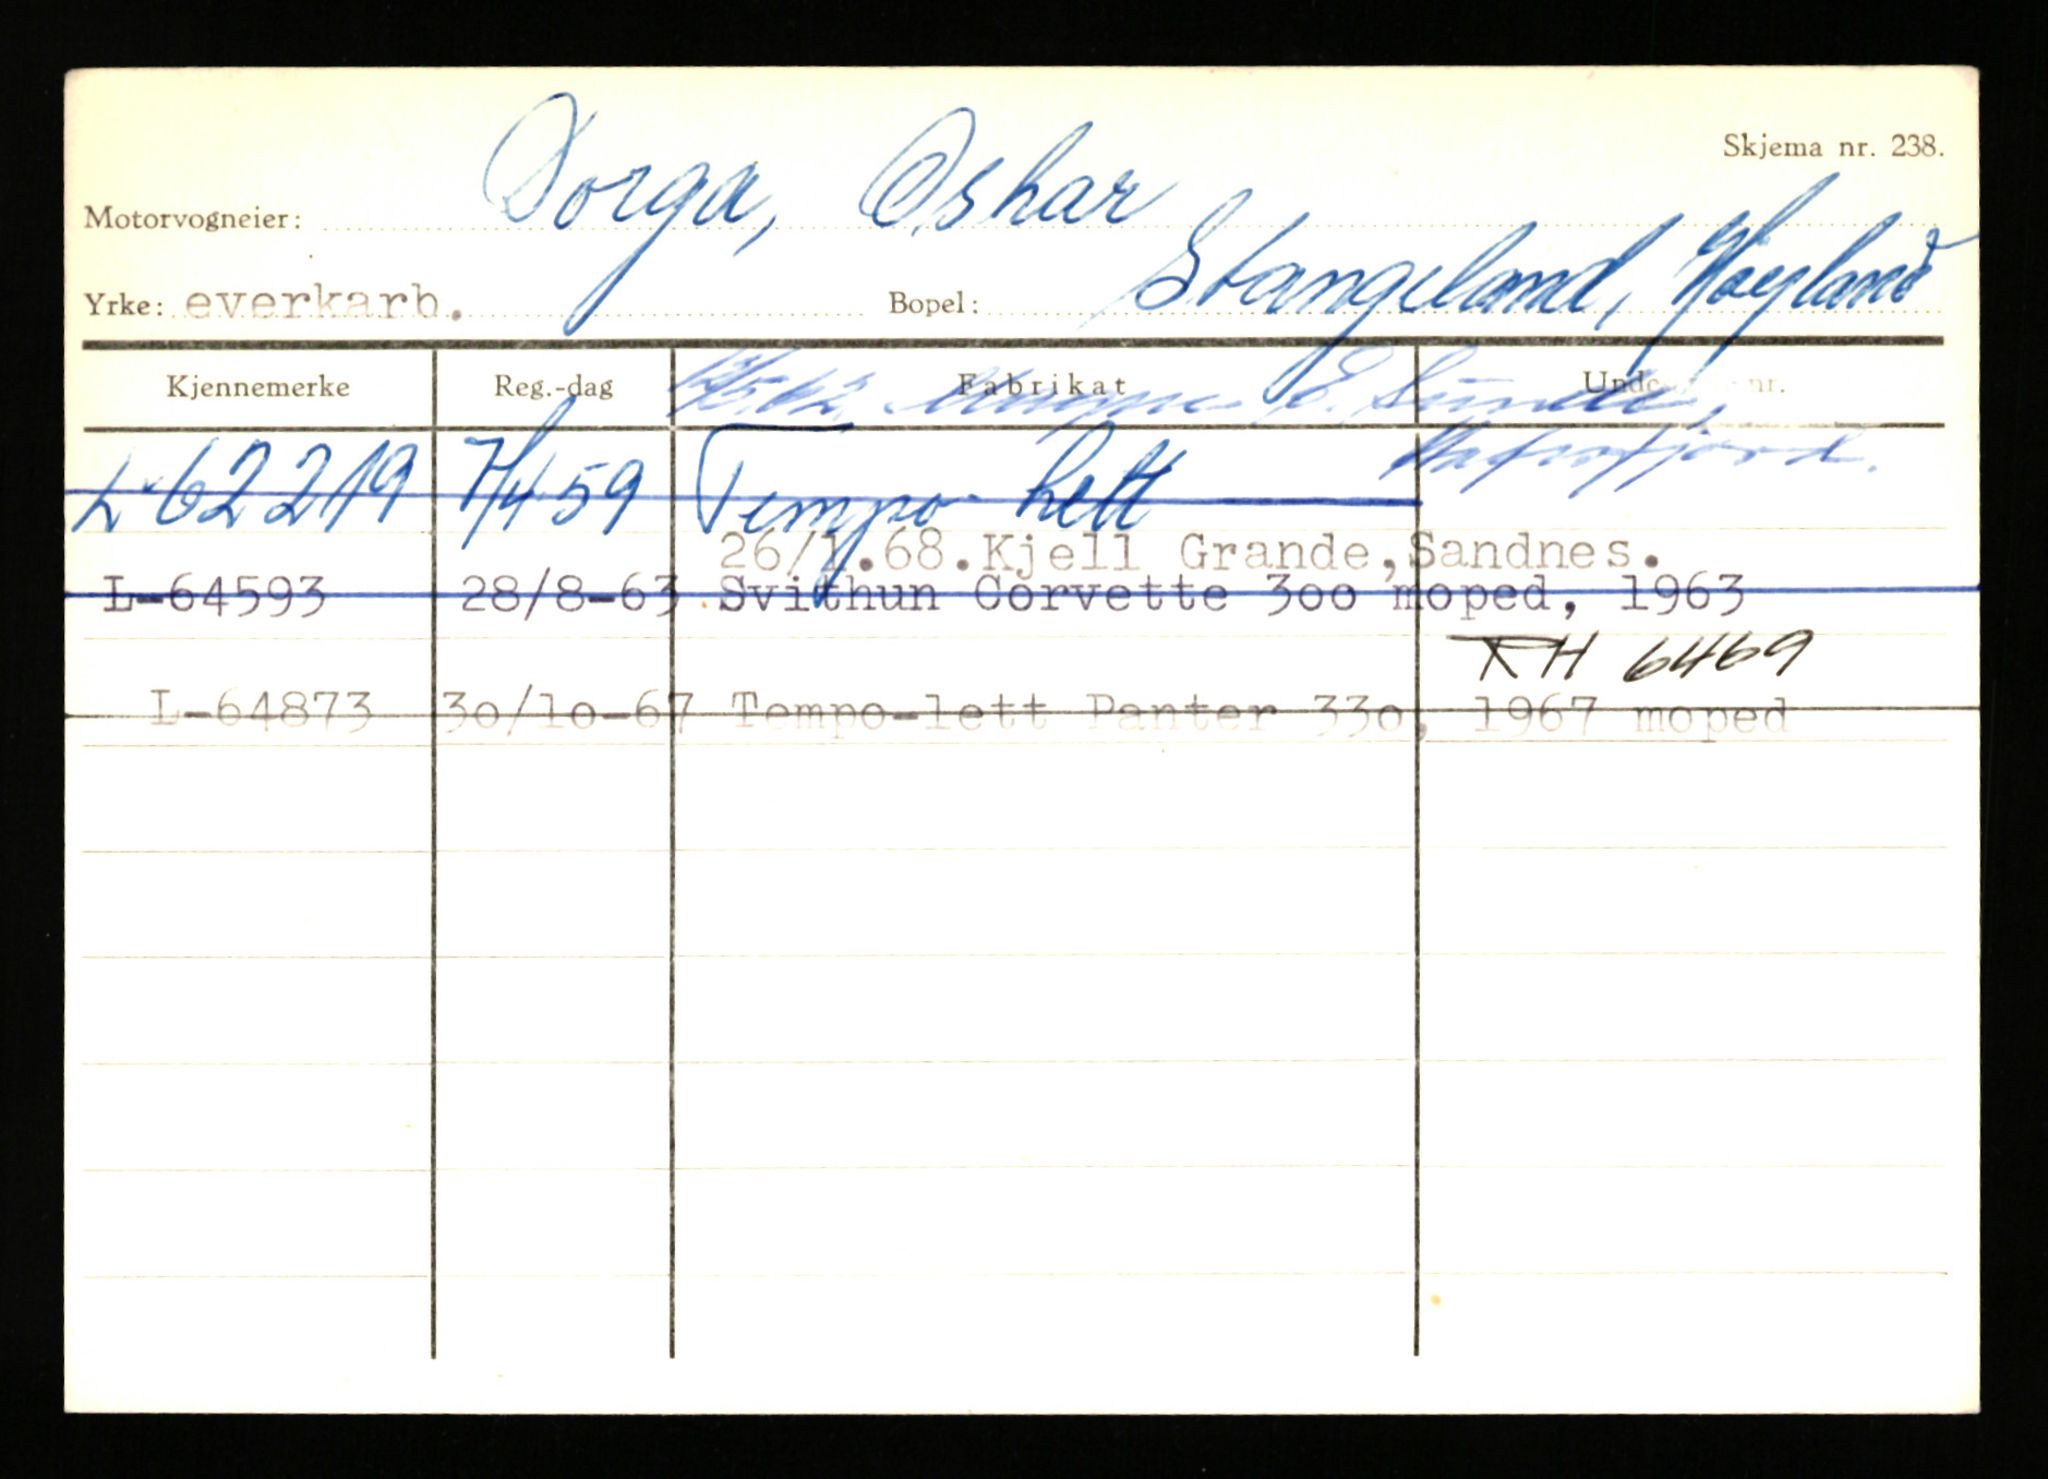 Skjema nr. 238.
Motorvogneier: Dorga, Oskar
Yrke: everkarb. Bopel: Stangeland, Høyland
Kjennemerke Reg.-dag Fabrikat nr.
E. Sunde,
Hafrsfjord.
L-62219 7/4 59 Tempo lett
26/1.68.Kjell Grande,Sandnes.
L-64593 28/8-63 Svithun Corvette 3oo moped, 1963
RH 6469
L-64873 3o/1o-67 Tempo-lett Panter 33o, 1967 moped